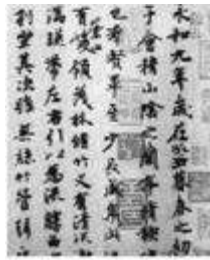 永和九年歲在癸丑暮春之初
于會稽山陰之蘭亭脩禊
也羣賢畢至少長咸集此
崇山
有峻領茂林脩竹又有清流
湍暎帶左右引以為流觴曲
列坐其次雖無絲竹管弦